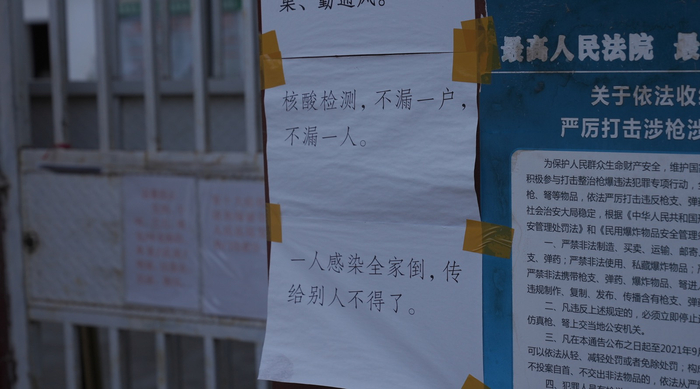 集、勤通风。
核酸检测，不漏一户，
不漏一人。
一人感染全家倒，传
给别人不得了。
最高人民法院 最
关于依法收缴
严厉打击涉枪涉
为保护人民群众生命财产安全，维护国
积极参与打击整治枪爆违法犯罪专项行动，
枪、弩等物品，依法严厉打击违反枪支、弹药
社会治安大局稳定，根据《中华人民共和国
安管理处罚法》和《民用爆炸物品安全管理
一、严禁非法制造、买卖、运输、邮寄、
支、弹药；严禁非法使用、私藏爆炸物品；
严禁非法携带枪支、弹药、爆炸物品、弩进
违规制作、复制、发布、传播含有枪支、弹
二、凡违反上述规定的，必须立即停止
仿真枪、弩上交当地公安机关。
三、凡在本通告公布之日起至2021年9
可以依法从轻、减轻处罚或者免除处罚；
不投案自首、不交出非法物品的，依法从
四、犯罪人员有